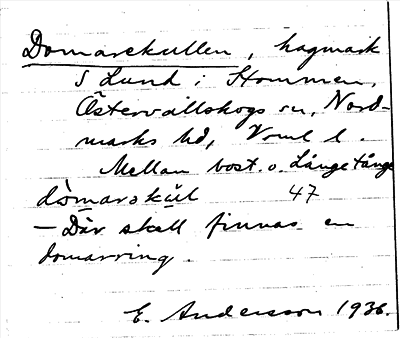 Domarekullen, hagmark
S Lund i Stommen,
Östervallskogs sn, Nord-
marks hd, Vrml l.
Mellan bost. o. Långe tånge
domarakul 47
— Där skall finnas en
domarring.
E. Andersson 1936.